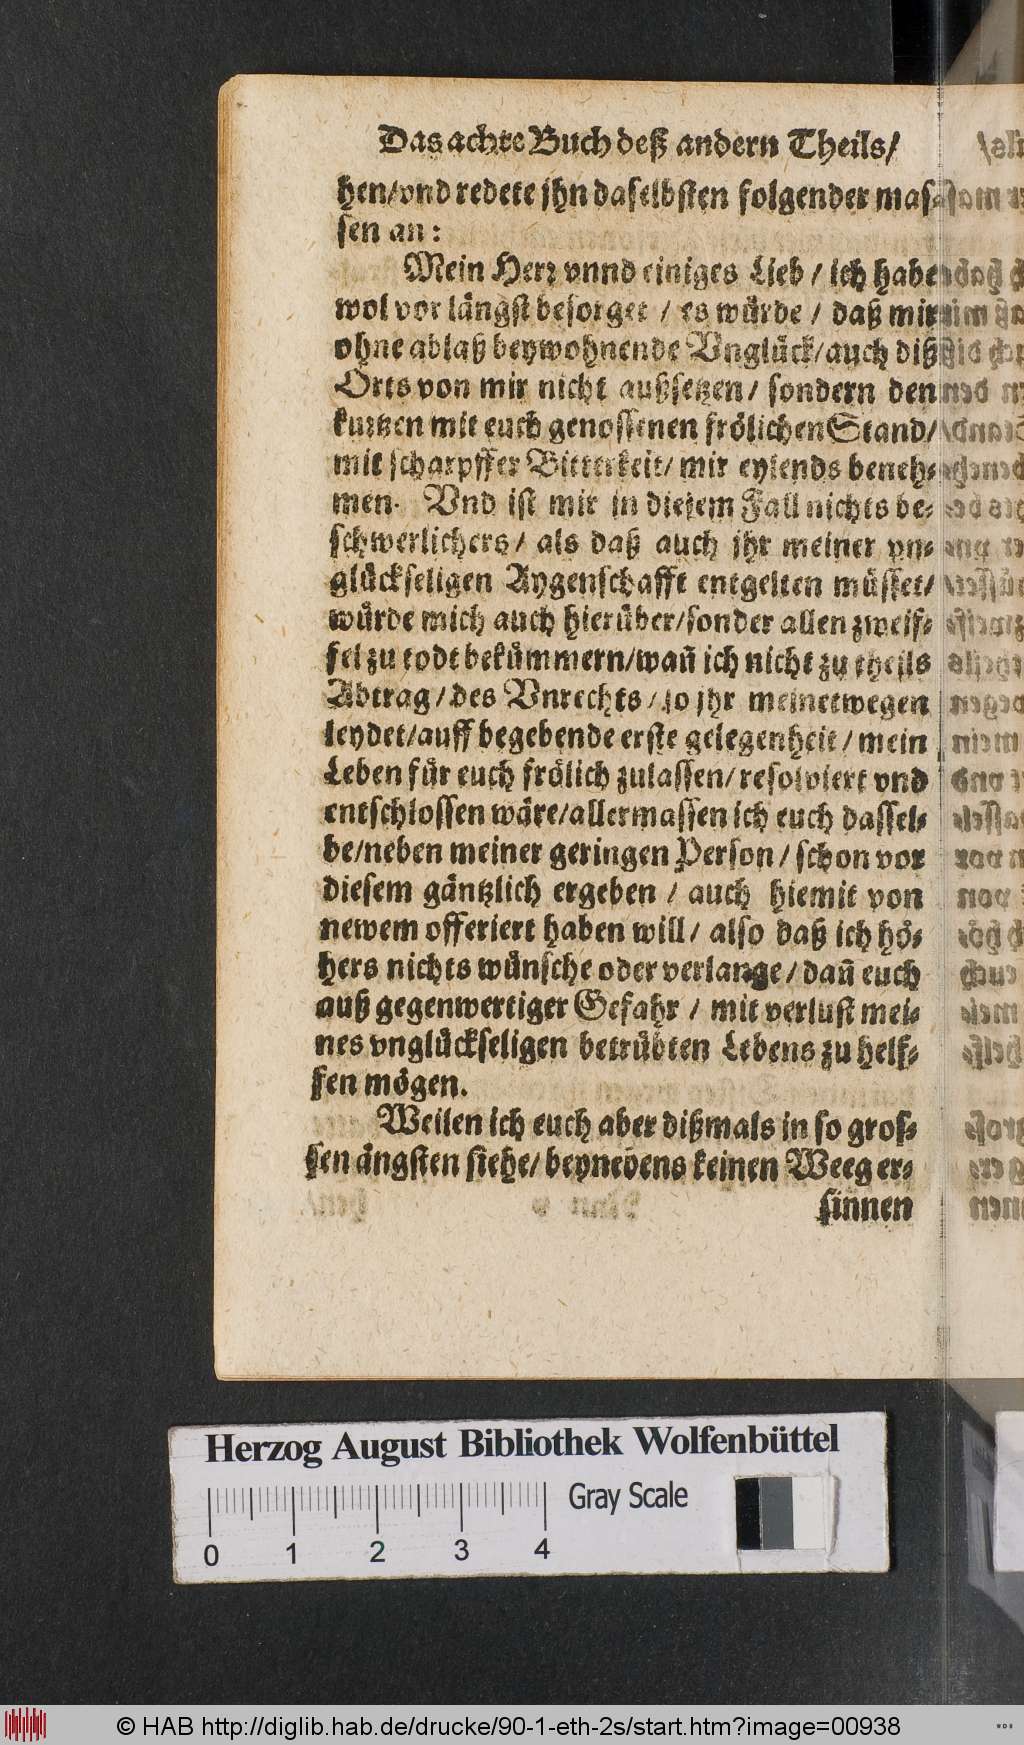 Das achte Buch deß andern Theils/
hen/vnd redete jhn daselbsten folgender mas⸗
sen an:
Mein Hertz vnnd einiges Lieb / ich habe
wol vor längst besorget / es würde / daß mir
ohne ablaß beywohnende Vnglück/auch diß
Orts von mir nicht außsetzen/ sondern den
kurtzen mit euch genossenen frölichen Stand/
mit scharpffer Bitterkeit/ mir eylends beneh⸗
men. Vnd ist mir in diesem Fall nichts be⸗
schwerlichers/ als daß auch jhr meiner vn⸗
glückseligen Aygenschafft entgelten müsset/
würde mich auch hierüber/sonder allen zweif⸗
fel zu todt bekümmern/wañ ich nicht zu theils
Abtrag/des Vnrechts/so jhr meinetwegen
leydet/auff begebende erste gelegenheit/mein
Leben für euch frölich zulassen/resolviert vnd
entschlossen wäre/allermassen ich euch dassel⸗
be/neben meiner geringen Person/ schon vor
diesem gäntzlich ergeben / auch hiemit von
newem offeriert haben will/ also daß ich hö⸗
hers nichts wünsche oder verlange/dañ euch
auß gegenwertiger Gefahr / mit verlust mei⸗
nes vnglückseligen betrübten Lebens zu helf⸗
fen mögen.
Weilen ich euch aber dißmals in so gros⸗
sen ängsten siehe/ beynebens keinen Weeg er⸗
sinnen
Herzog August Bibliothek Wolfenbüttel
Gray Scale
0 1 2 3 4
© HAB http://diglib.hab.de/drucke/90-1-eth-2s/start.htm?image=00938